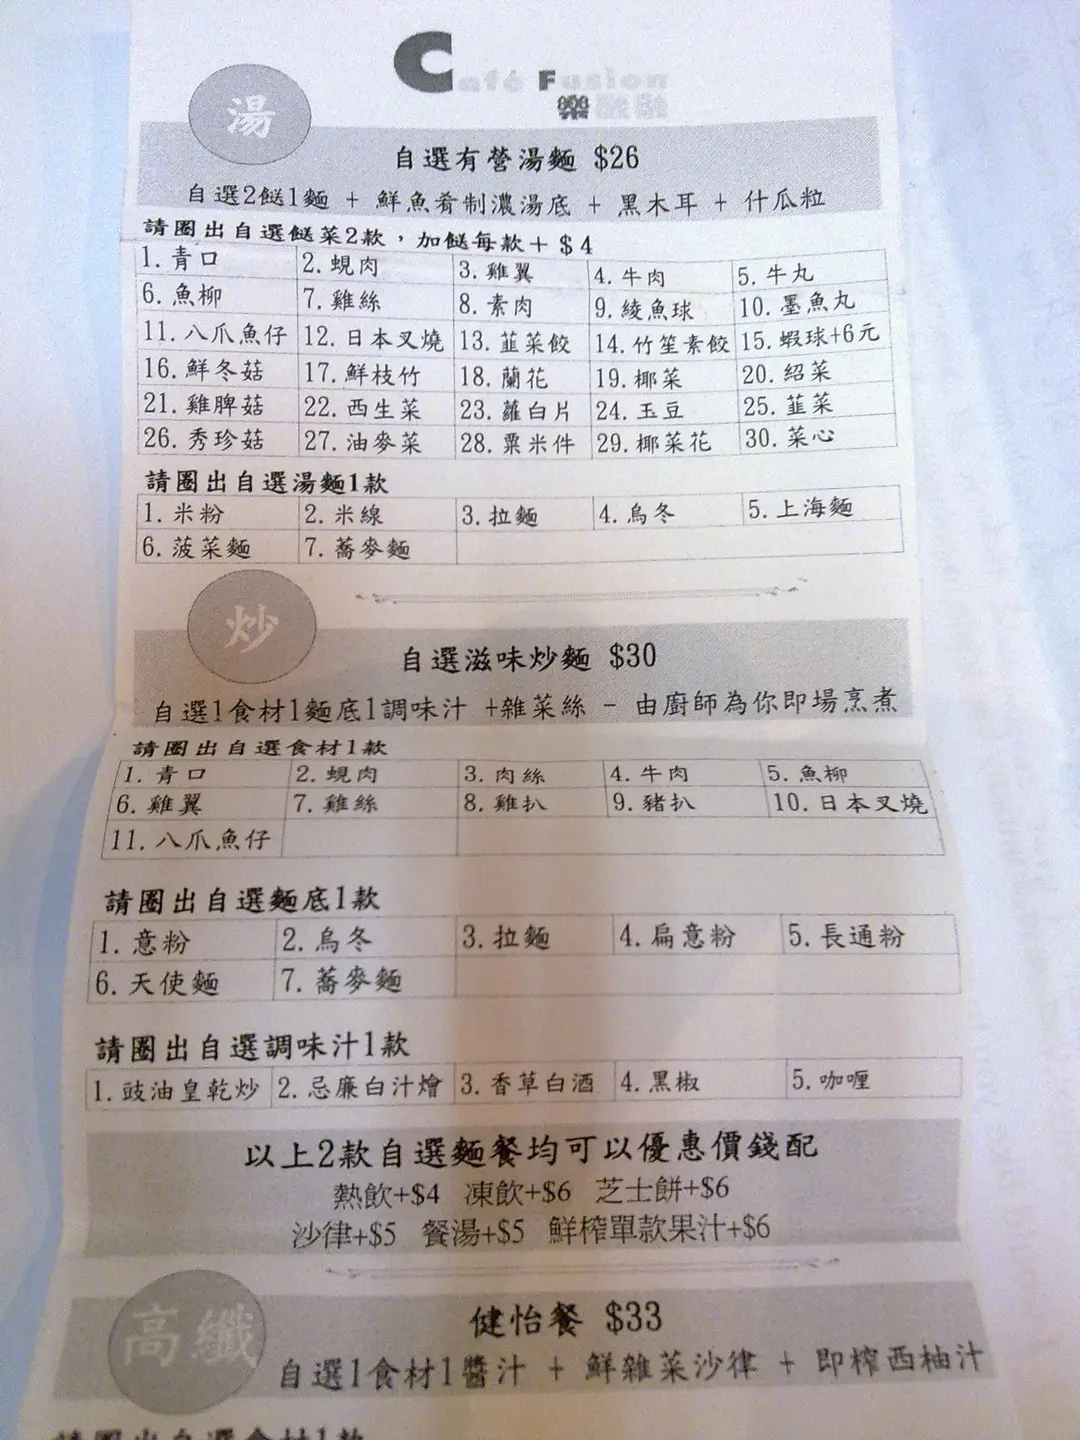 Café Fusion
樂融融
湯
自選有營湯麵 $26
自選2餸1麵 + 鮮魚肴制濃湯底 + 黑木耳 + 什瓜粒
請圈出自選餸菜2款，加餸每款+$4
1. 青口 2. 蜆肉 3. 雞翼 4. 牛肉 5. 牛丸
6. 魚柳 7. 雞絲 8. 素肉 9. 綾魚球 10. 墨魚丸
11. 八爪魚仔 12. 日本叉燒 13. 韮菜餃 14. 竹笙素餃 15. 蝦球+6元
16. 鮮冬菇 17. 鮮枝竹 18. 蘭花 19. 椰菜 20. 紹菜
21. 雞脾菇 22. 西生菜 23. 蘿白片 24. 玉豆 25. 韮菜
26. 秀珍菇 27. 油麥菜 28. 粟米件 29. 椰菜花 30. 菜心
請圈出自選湯麵1款
1. 米粉 2. 米線 3. 拉麵 4. 烏冬 5. 上海麵
6. 菠菜麵 7. 蕎麥麵
炒
自選滋味炒麵 $30
自選1食材1麵底1調味汁 +雜菜絲 - 由廚師為你即場烹煮
請圈出自選食材1款
1. 青口 2. 蜆肉 3. 肉絲 4. 牛肉 5. 魚柳
6. 雞翼 7. 雞絲 8. 雞扒 9. 豬扒 10. 日本叉燒
11. 八爪魚仔
請圈出自選麵底1款
1. 意粉 2. 烏冬 3. 拉麵 4. 扁意粉 5. 長通粉
6. 天使麵 7. 蕎麥麵
請圈出自選調味汁1款
1. 豉油皇乾炒 2. 忌廉白汁燴 3. 香草白酒 4. 黑椒 5. 咖喱
以上2款自選麵餐均可以優惠價錢配
熱飲+$4 凍飲+$6 芝士餅+$6
沙律+$5 餐湯+$5 鮮榨單款果汁+$6
高纖
健怡餐 $33
自選1食材1醬汁 + 鮮雜菜沙律 + 即榨西柚汁
請圈出自選食材1款